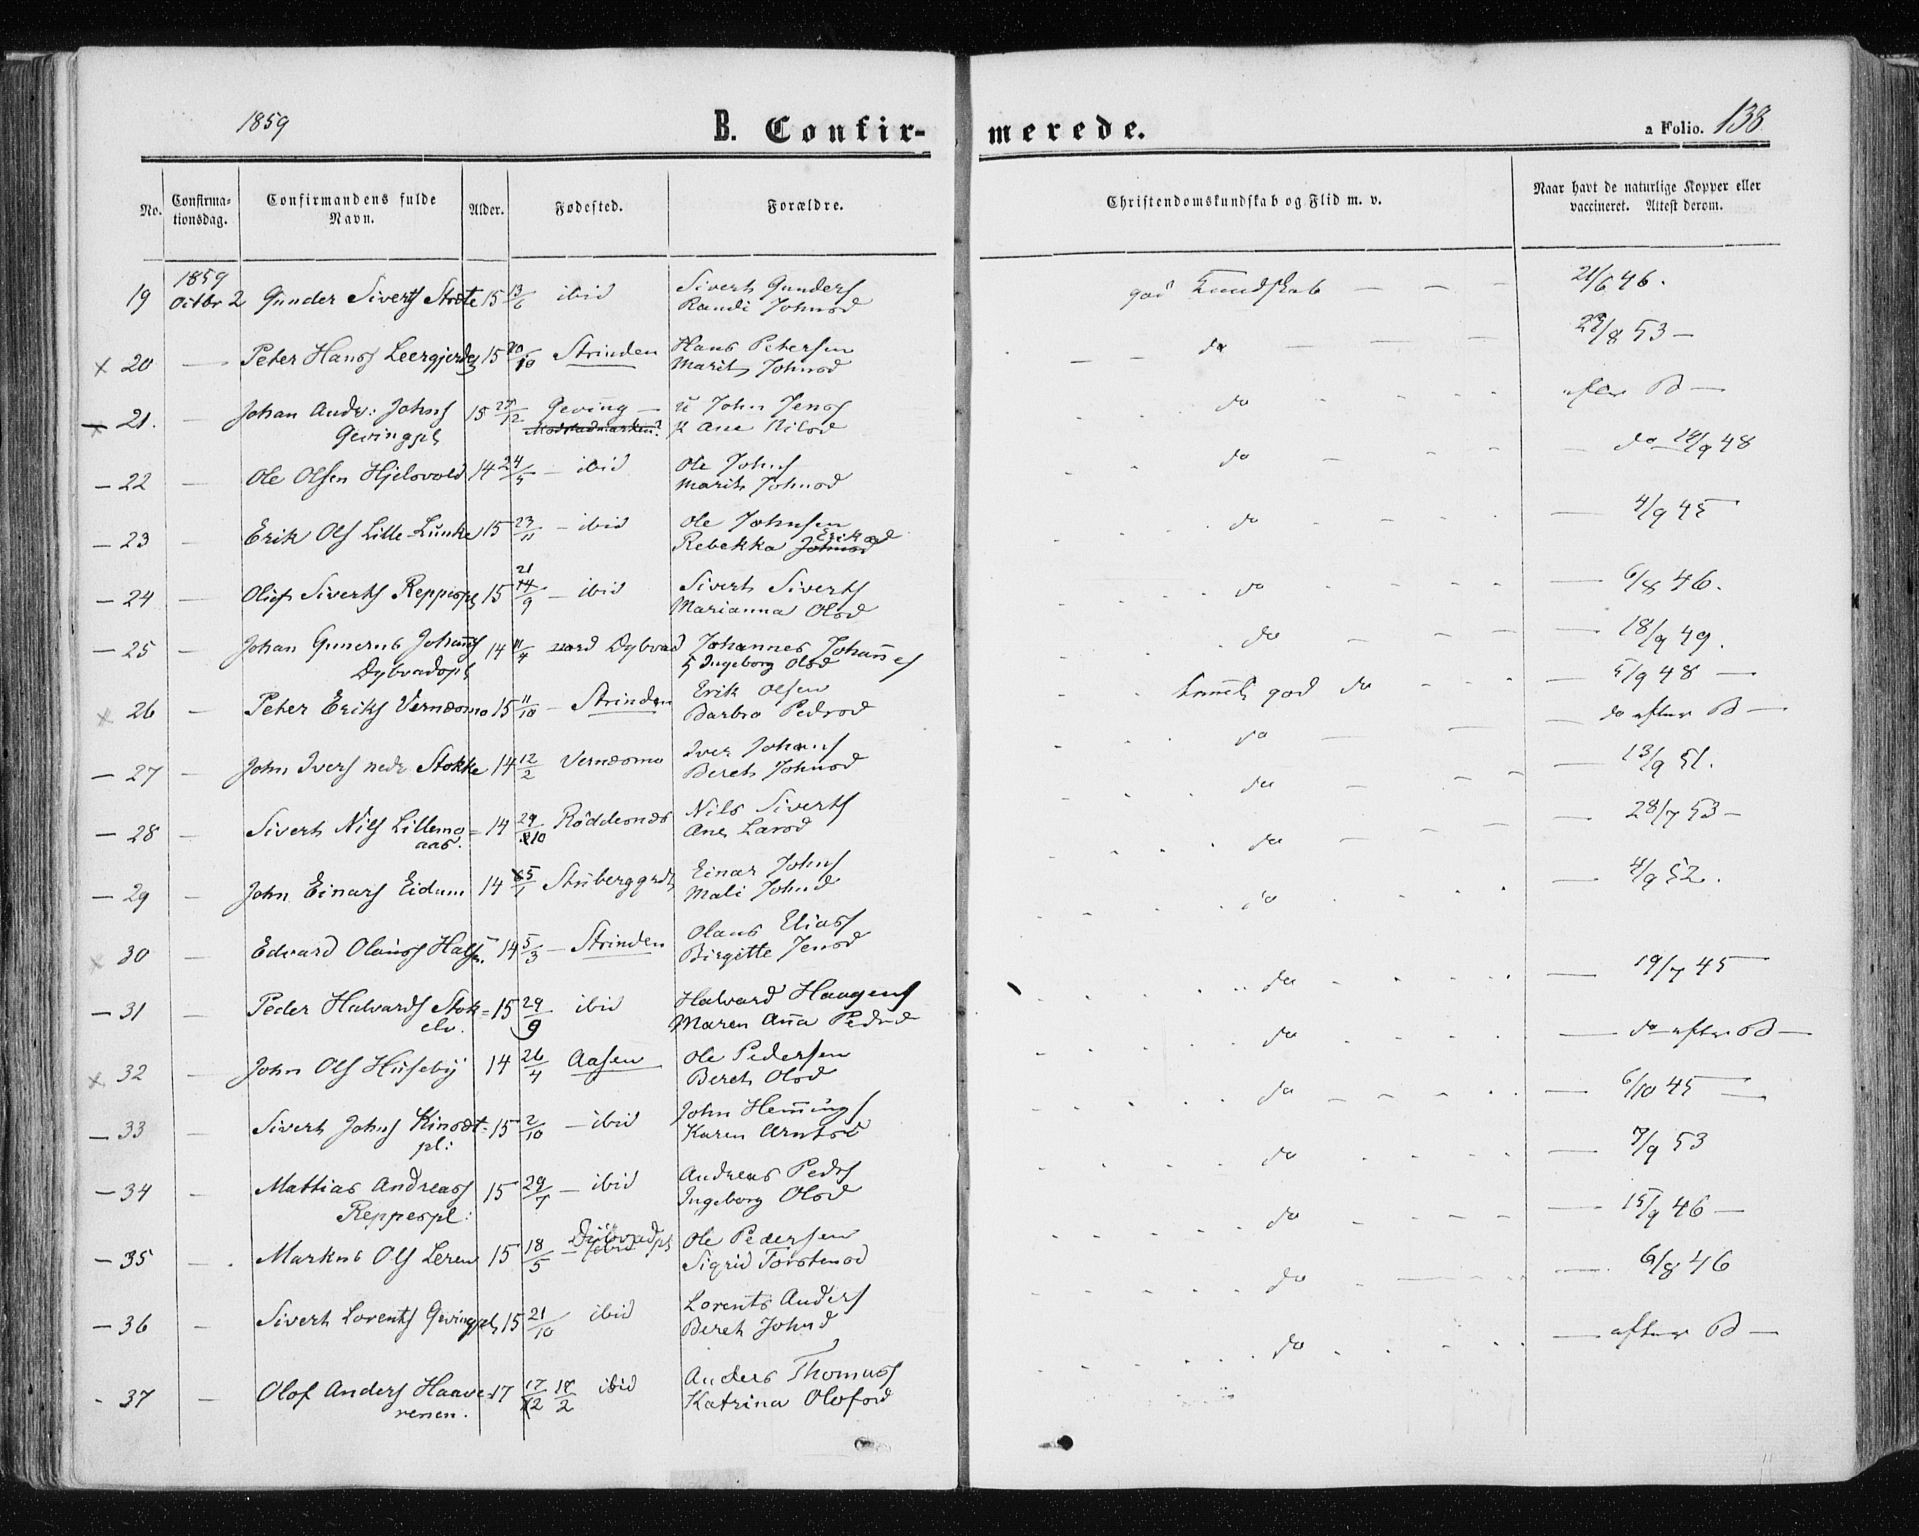 1859
B. Confir-
merede.
a Folio. 138
No.
Confirma-
tionsdag.
Confirmandens fulde
Navn.
Alder.
Fødested.
Forældre.
Christendomskundskab og Flid m. v.
Naar havt de naturlige Kopper eller
vaccineret. Attest derom.
1859
19 Octbr 2 Gunder Siverts 15 13/6 ibid Siverts Gunders god Kundskab — — — 21/6 46.
Randi Johnsd
x 20 — Peter Hans Leergjerdes 15 20/10 Strinden Hans Petersen — — do — — — 29/8 53 —
Marit Johnsd
x 21. — Johan Andr: Johns 15 27/12 Geving — u John Jens do after B —
Gevingpl Modstadmarken? p Ane Nilsd
— 22 — Ole Olsen Hjelsvold 14 24/5 — ibid Ole Johns do — do 14/9 48
Marit Johnsd
— 23 — Erik Ols Lille-Lunke 15 23/11 — ibid Ole Johnsen do — 4/9 45
Rebekka Johnsd Eriksd
— 24 — Oluf Siverts Reppespl 15 21 14/9 — ibid Sivert Siverts do — 6/8 46.
Marianna Olsd
— 25 — Johan Gunerus Johans 14 11/4 Dybvad Johannes Johannes do — 18/9 49.
Dybvadspl Ingeborg Olsd
x 26 — Peter Eriks Vernesmo 15 11/10 — Strinden Erik Olsen temel god do — 5/9 48 —
Barbro Pedrsd — do after B —
— 27 — John Ivers nedr Stokke 14 12/2 Vernesmo Iver Johans do — 13/9 51.
Beret Johnsd
— 28 — Sivert Nils Lillemo = 14 29/10 Röddesnes Nils Siverts do — 28/7 53 —
aas. Ane Larsd
— 29 — John Einars Eidum 14 5/1 Stuberggrd Einar Johns do — 4/9 52.
Mali Johnsd
x 30 — Edvard Olaus Halsen. 14 5/3 — Strinden Olaus Elias do — 19/7 45
Birgitte Jensd
— 31 — Peder Halvards Stok = 15 29/9 ibid Halvard Haagens do — do after B —
elv. Maren Anna Pedersd
x 32 — John Ols Huseby 14 26/4 Aasen Ole Pedersen do — 6/10 45 —
Beret Olsd
— 33 — Sivert Johns Kinset- 15 2/10 — ibid John Hemings do 7/9 53
pl: Karen Arntsd
— 34 — Mathias Andreas 15 29/7 — ibid Andreas Peders do — 15/9 46 —
Reppespl: Ingeborg Olsd
— 35 — Markus Ols Leren 15 18/5 — ibid Dybvadpl Ole Pedersen do — 6/8 46
Sigrid Torstensd
— 36 — Sivert Lorents Gevingpl 15 21/10 ibid Lorents Anders do — after B —
Beret Johnsd
. 37 — Olof Anders Haave= 17 17/12 17/2 ibid Anders Thomas
renen. Katrina Olofsd